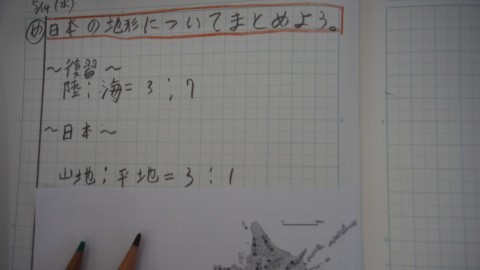 5/14(水)
め 日本の地形についてまとめよう。
～復習～
陸：海＝3：7
～日本～
山地：平地＝3：1